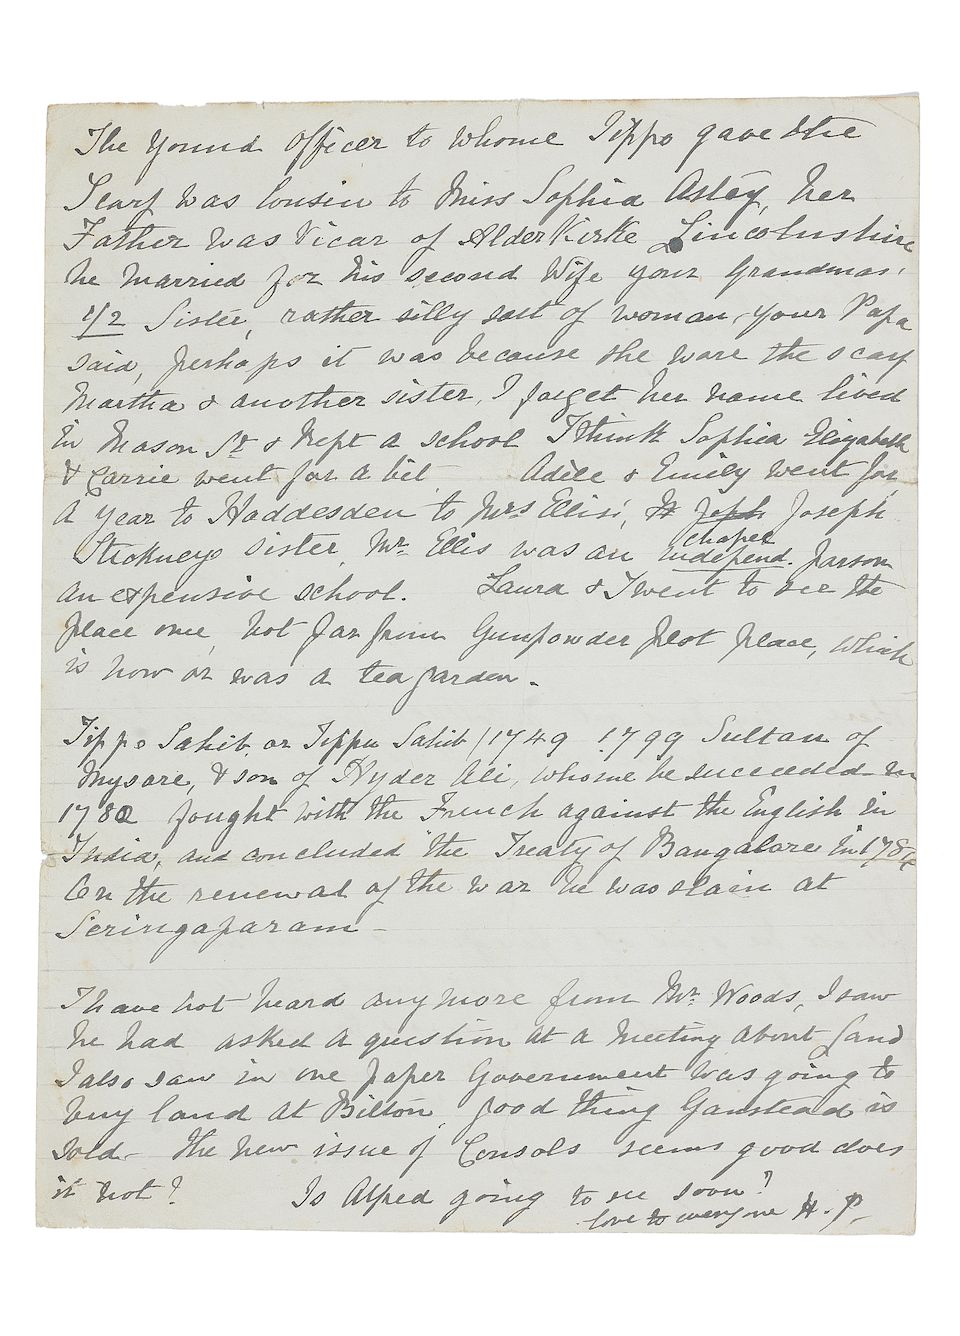 The Yound Officer to whome Tippo gave the
Scarf was Cousin to Miss Sophia Astey, her
Father was Vicar of AlderKirke Lincolnshire
he married for his second Wife your Grandmas.
1/2 Sister, rather silly sort of woman, your Papa
said, perhaps it was because she wore the scarf
Martha & another sister, I forget her name lived
in Mason St & kept a school I think Sophia Elizabeth
& Carrie went for a bit Adele & Emily went for
a year to Haddesden to Mrs Ellis, Joseph
Stickneys sister, Mr. Ellis was an independ. chapel parson
an expensive school. Laura & I went to see the
place once, not far from Gunpowder plot place, which
is now or was a tea garden -
Tippo Sahib or Tippu Sahib (1749 1799 Sultan of
Mysore, & son of Hyder Ali, whome he succeeded in
1782 fought with the French against the English in
India, and concluded the Treaty of Bangalore in 1784
On the renewal of the war he was slain at
Seringaparam -
I have not heard any more from Mr. Woods, I saw
he had asked a question at a meeting about land
I also saw in one paper Government was going to
buy land at Bilton, good thing Ganstead is
sold - the new issue of Consols seems good does
it not? Is Alfred going to see soon?
love to everyone H. P.